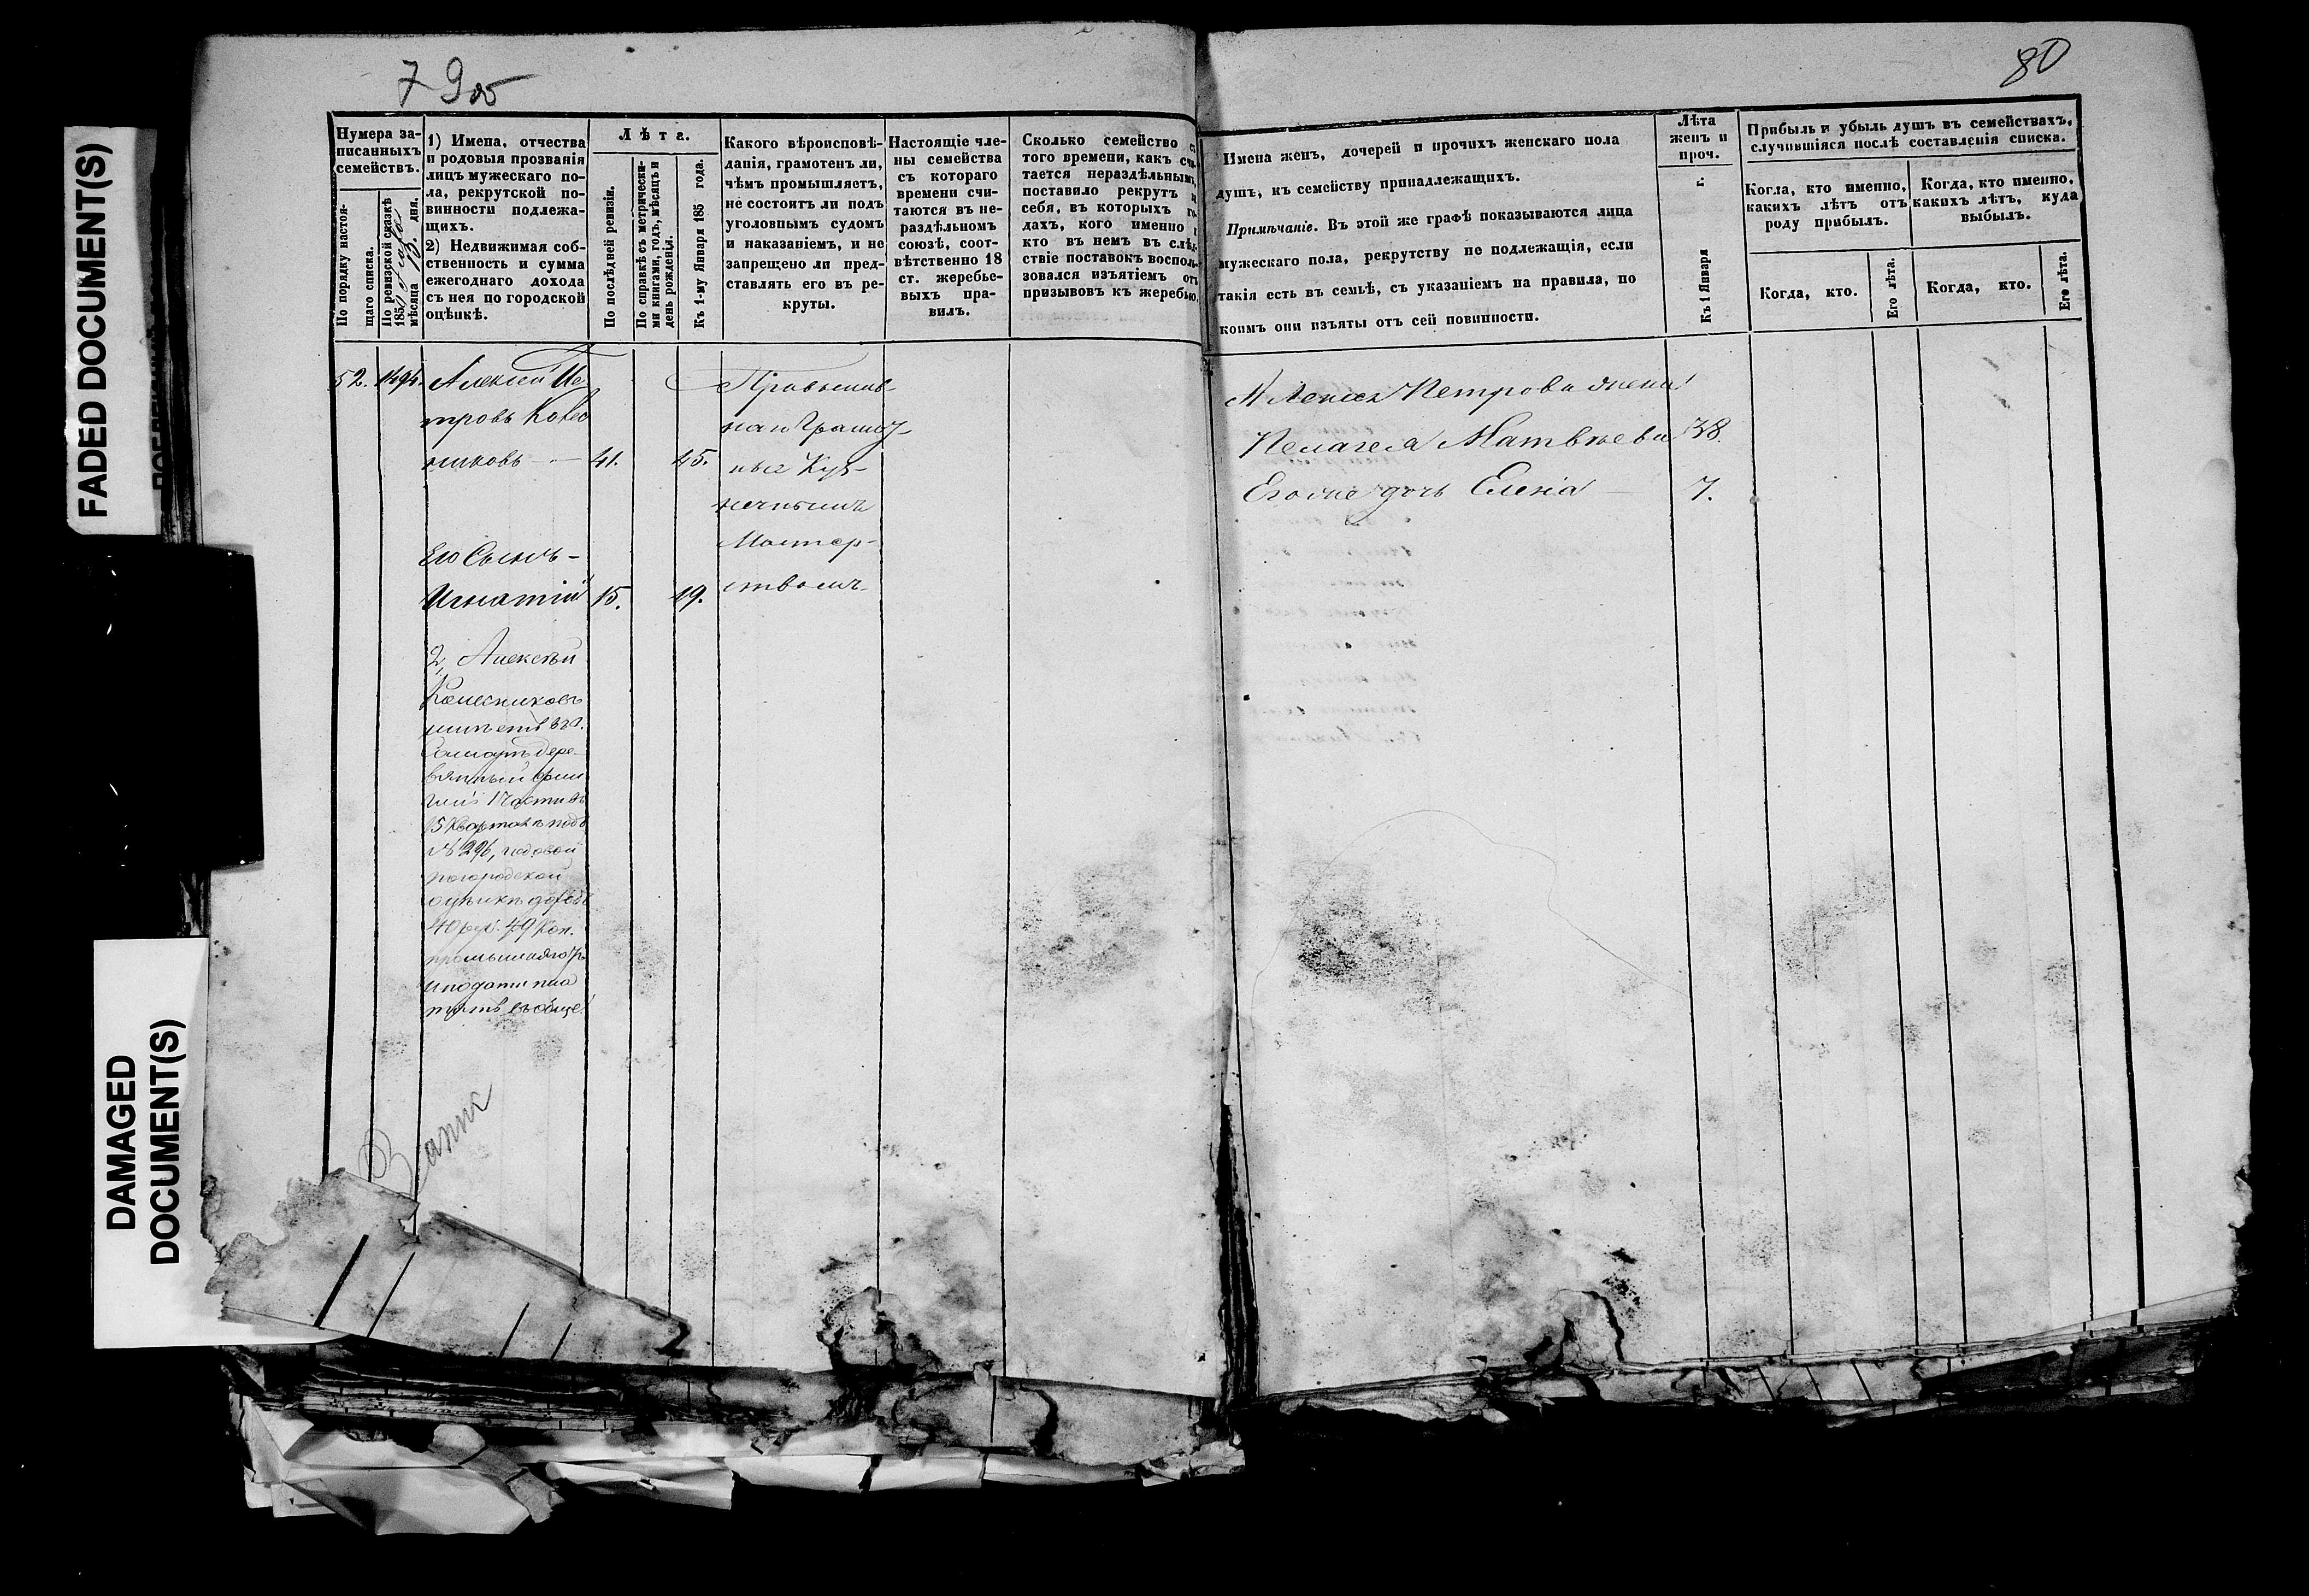 79 об
80
FADED DOCUMENT(S)
DAMAGED
DOCUMENT(S)
Нумера за-
писанныхъ
семействъ.
По порядку настоя-
щаго списка.
По ревизской сказкѣ
185
мѣсяца дня.
1) Имена, отчества
и родовыя прозванія
лицъ мужескаго по-
ла, рекрутской по-
винности подлежа-
щихъ.
2) Недвижимая соб-
ственность и сумма
ежегоднаго дохода
съ нея по городской
оцѣнкѣ.
Лѣта.
По послѣдней ревизіи.
По справкѣ съ метрически-
ми книгами, годъ, мѣсяцъ и
день рожденія.
Къ 1-му Января 185 года.
Какого вѣроисповѣ-
данія, грамотенъ ли,
чѣмъ промышляетъ,
не состоитъ ли подъ
уголовнымъ судомъ
и наказаніемъ, и не
запрещено ли пред-
ставлять его въ ре-
круты.
Настоящіе чле-
ны семейства
съ котораго
времени счи-
таются въ не-
раздѣльномъ
союзѣ, соот-
вѣтственно 18
ст. жеребье-
выхъ пра-
вилъ.
Сколько семейство съ
того времени, какъ счи-
тается нераздѣльнымъ,
поставило рекрутъ и
себя, въ которыхъ го-
дахъ, кого именно и
кто въ немъ въ слѣд-
ствіе поставокъ восполь-
зовался изъятіемъ отъ
призывовъ къ жеребью.
Имена женъ, дочерей и прочихъ женскаго пола
душъ, къ семейству принадлежащихъ.
Примѣчаніе. Въ этой же графѣ показываются лица
мужескаго пола, рекрутству не подлежащія, если
такія есть въ семьѣ, съ указаніемъ на правила, по
коимъ они изъяты отъ сей повинности.
Лѣта
женъ и
проч.
Къ 1 Января г.
Прибыль и убыль душъ въ семействахъ,
случившіяся послѣ составленія списка.
Когда, кто именно,
какихъ лѣтъ отъ
роду прибылъ.
Когда, кто именно,
какихъ лѣтъ, куда
выбылъ.
Когда, кто.
Его лѣта.
Когда, кто.
Его лѣта.
52. Алексѣй Пе
тровъ Колес
никовъ — 41. 45.
Его Сынъ –
Игнатій 15. 19.
2, Алексѣй
Колесниковъ
имѣетъ въ г.
Самарѣ дере-
вянный фли
гель 1 части въ
15 Кварталѣ подъ
№ 296, годовой
погородской
оцѣнкѣ доходъ
40 руб. 49 Коп.
и подати пла
тятъ въобще
Православ-
Куз-
нечнымъ
Мастер-
ствомъ
Алексѣя Петрова жена
Пелагея Матвѣева 38.
Его же дочь Еленia — 7.